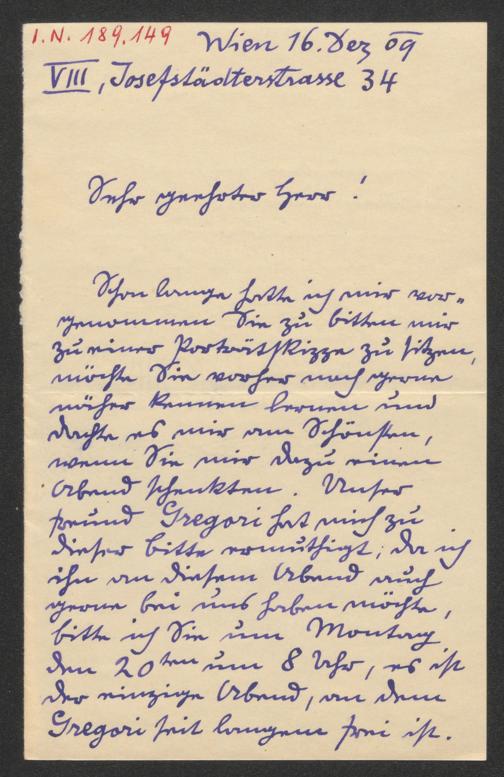 I.N. 189.149
Wien 16. Dez 09
VIII, Josefstädterstrasse 34
Sehr geehrter Herr!
Schon lange hatte ich mir vor-
genommen Sie zu bitten mir
zu einer Porträtskizze zu sitzen,
möchte Sie vorher noch gerne
näher kennen lernen und
dachte es mir am Schönsten,
wenn Sie mir dazu einen
Abend schenkten. Unser
Freund Gregori hat mich zu
dieser bitte ermuthigt; da ich
ihn an diesem Abend auch
gerne bei uns haben möchte,
bitte ich Sie um Montag
den 20ten um 8 Uhr, es ist
der einzige Abend, an dem
Gregori seit langem frei ist.